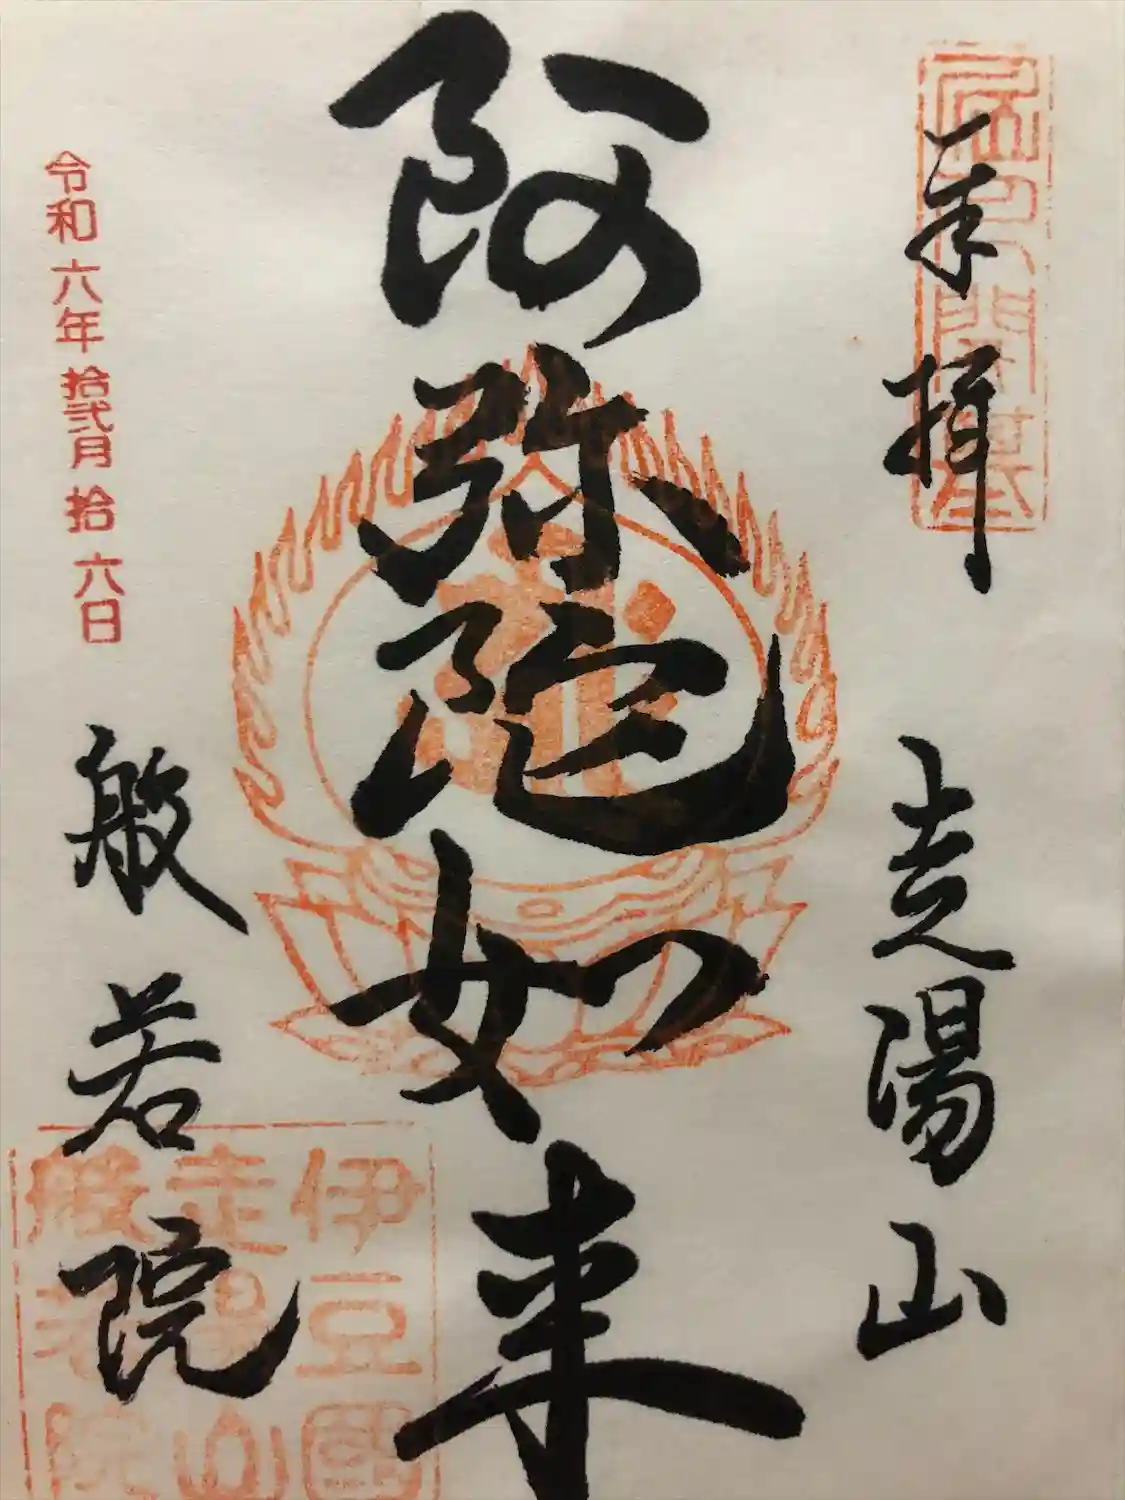 奉拝
走湯山
阿弥陀如来
令和六年拾弐月拾六日
般若院
伊豆國
走湯山
般若院